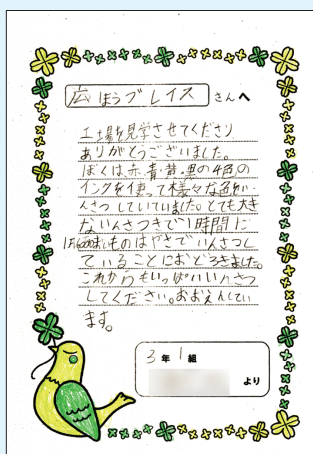 広ほうプレイスさんへ
工場を見学させてくださり
ありがとうございました。
ぼくは赤、青、黄、黒の4色の
インクを使って様々な色がい
んさつしていていました。とても大き
ないんさつきで1時間に
まいものはやさでいんさつし
ていることにおどろきました。
これからもいっぱいいんさつ
してください。おおえんしてい
ます。
3年1組
より